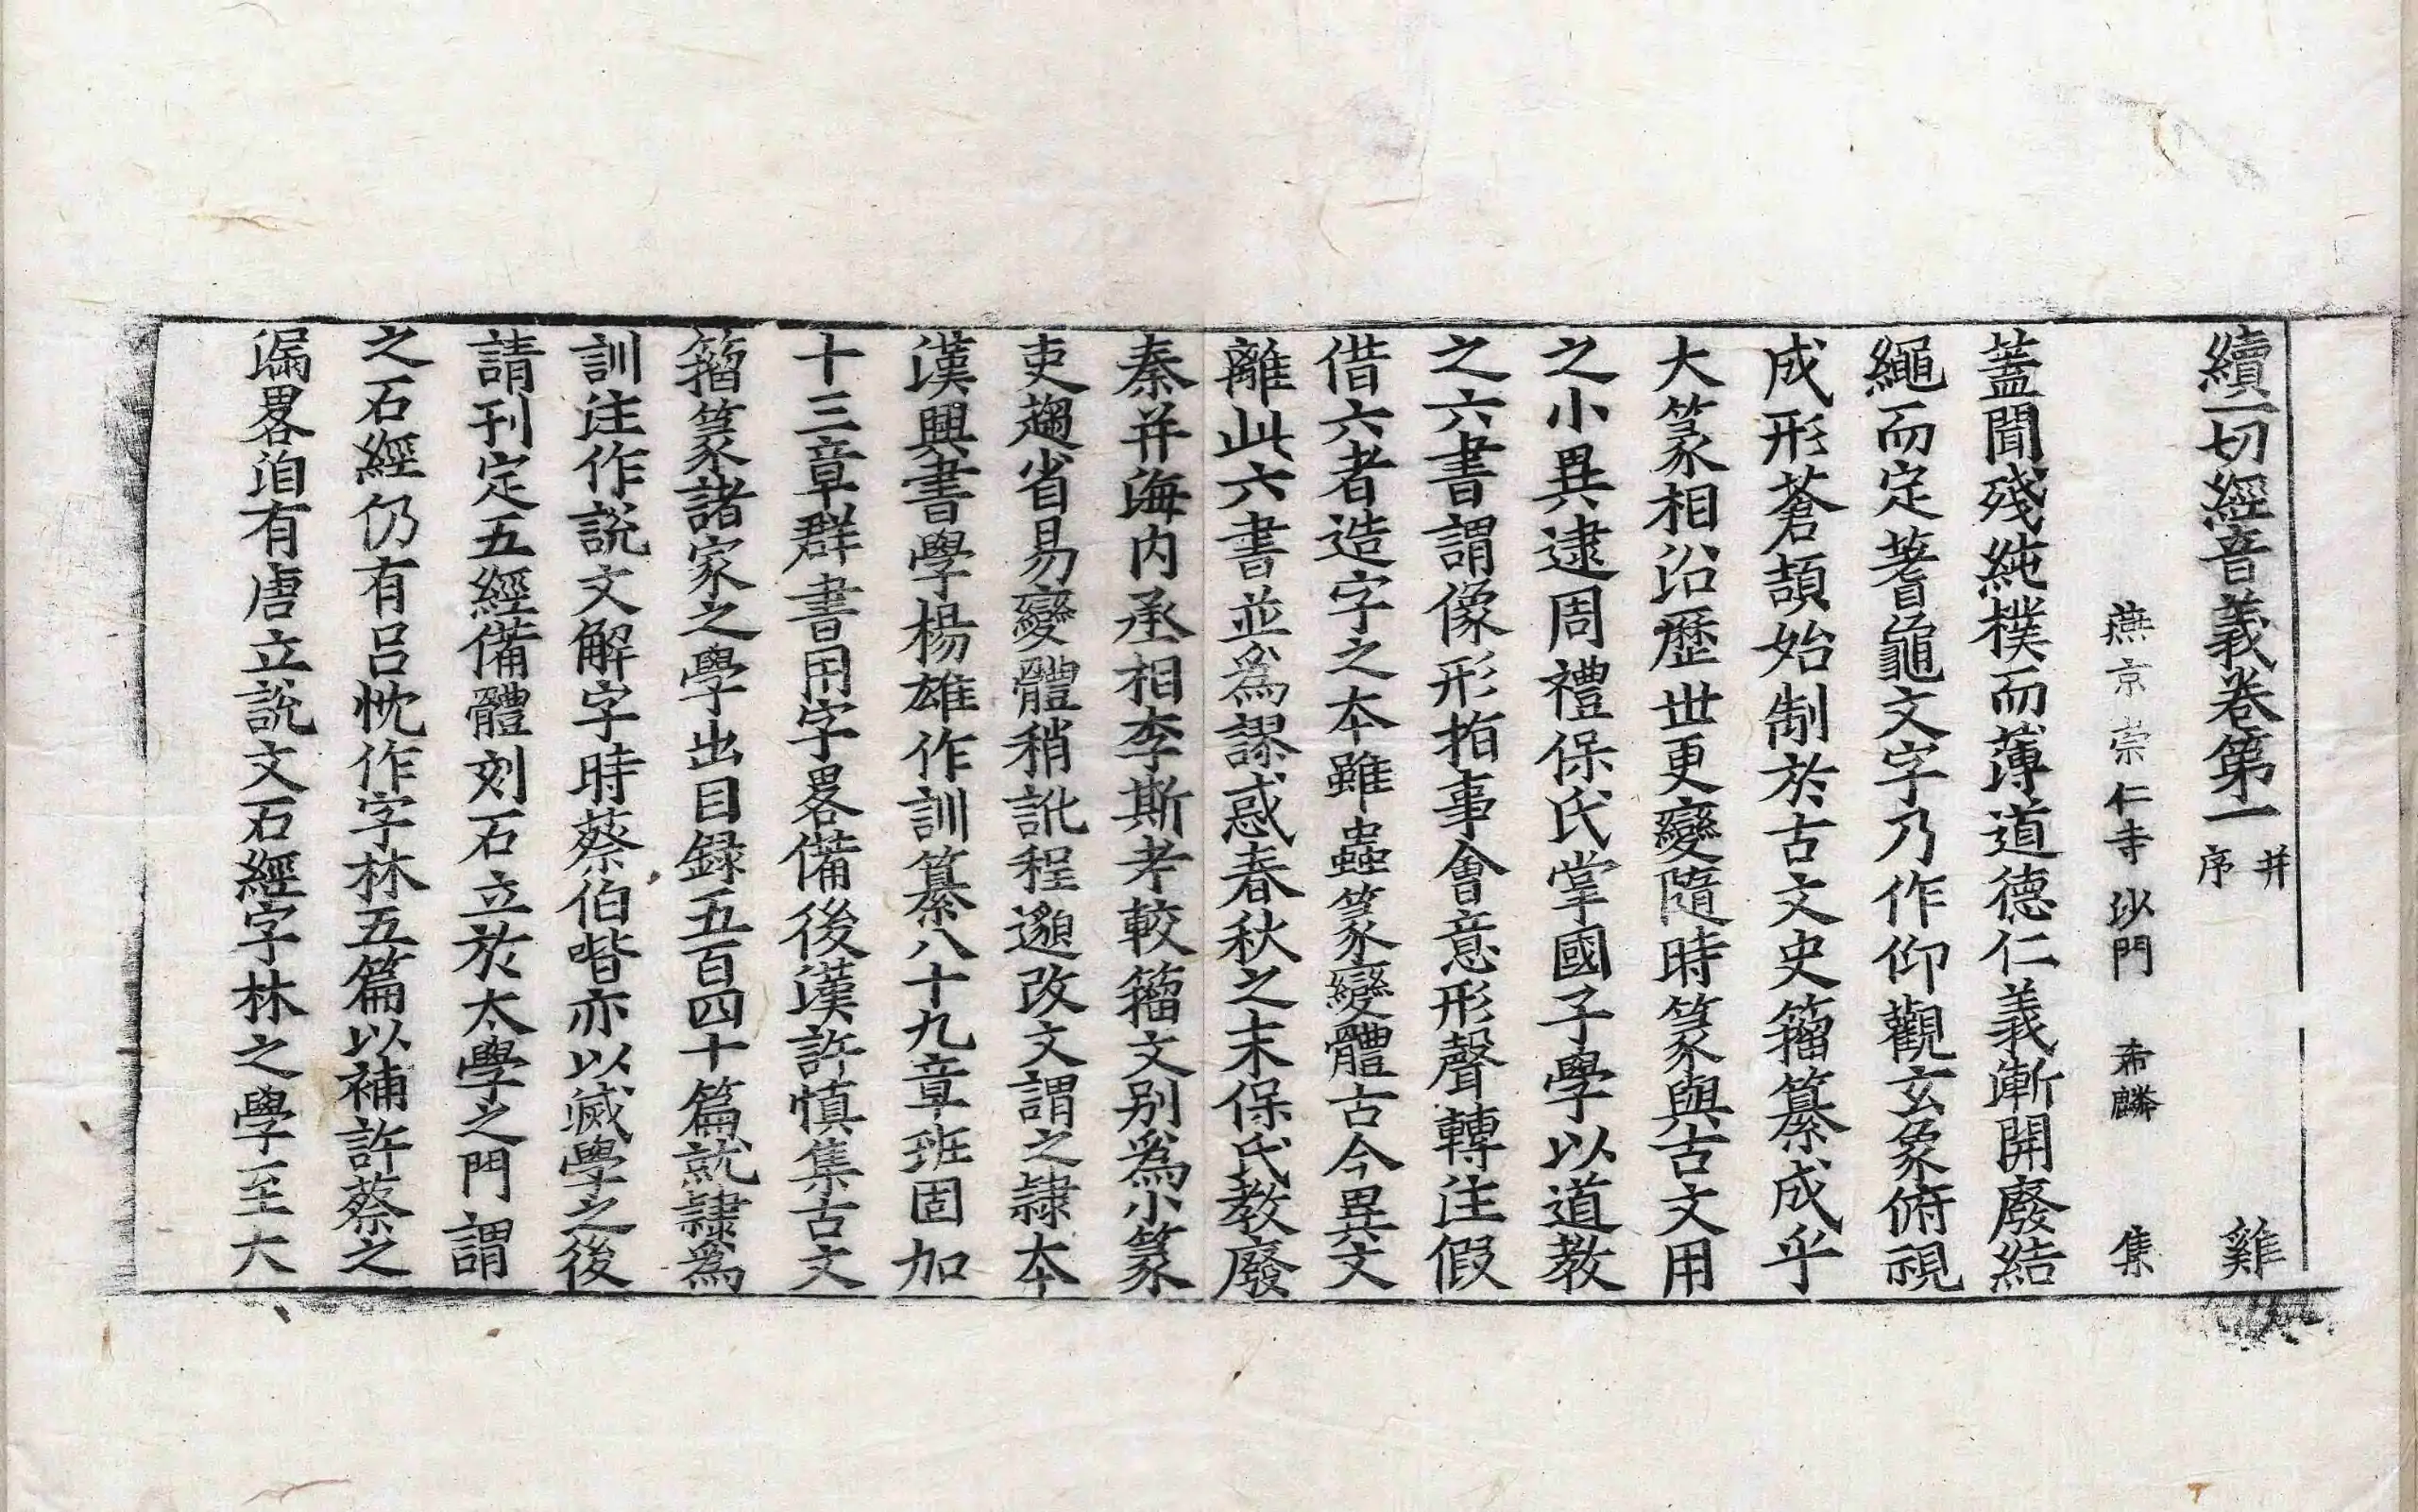 續一切經音義卷第一 并序 雞
燕京崇仁寺沙門 希麟 集
蓋聞殘純樸而薄道德仁義漸開廢結
繩而定蓍龜文字乃作仰觀玄象俯視
成形蒼頡始制於古文史籀纂成乎
大篆相沿歷世更變隨時篆與古文用
之小異逮周禮保氏掌國子學以道教
之六書謂像形指事會意形聲轉注假
借六者造字之本雖蟲篆變體古今異文
離此六書並爲謬惑春秋之末保氏教廢
秦并海内丞相李斯考較籀文别爲小篆
吏趨省易變體稍訛程邈改文謂之隷本
漢興書學楊雄作訓纂八十九章班固加
十三章群書用字畧備後漢許慎集古文
籀篆諸家之學出目録五百四十篇就隷爲
訓注作説文解字時蔡伯喈亦以滅學之後
請刊定五經備體刻石立於太學之門謂
之石經仍有吕忱作字林五篇以補許蔡之
漏畧洎有唐立説文石經字林之學至大